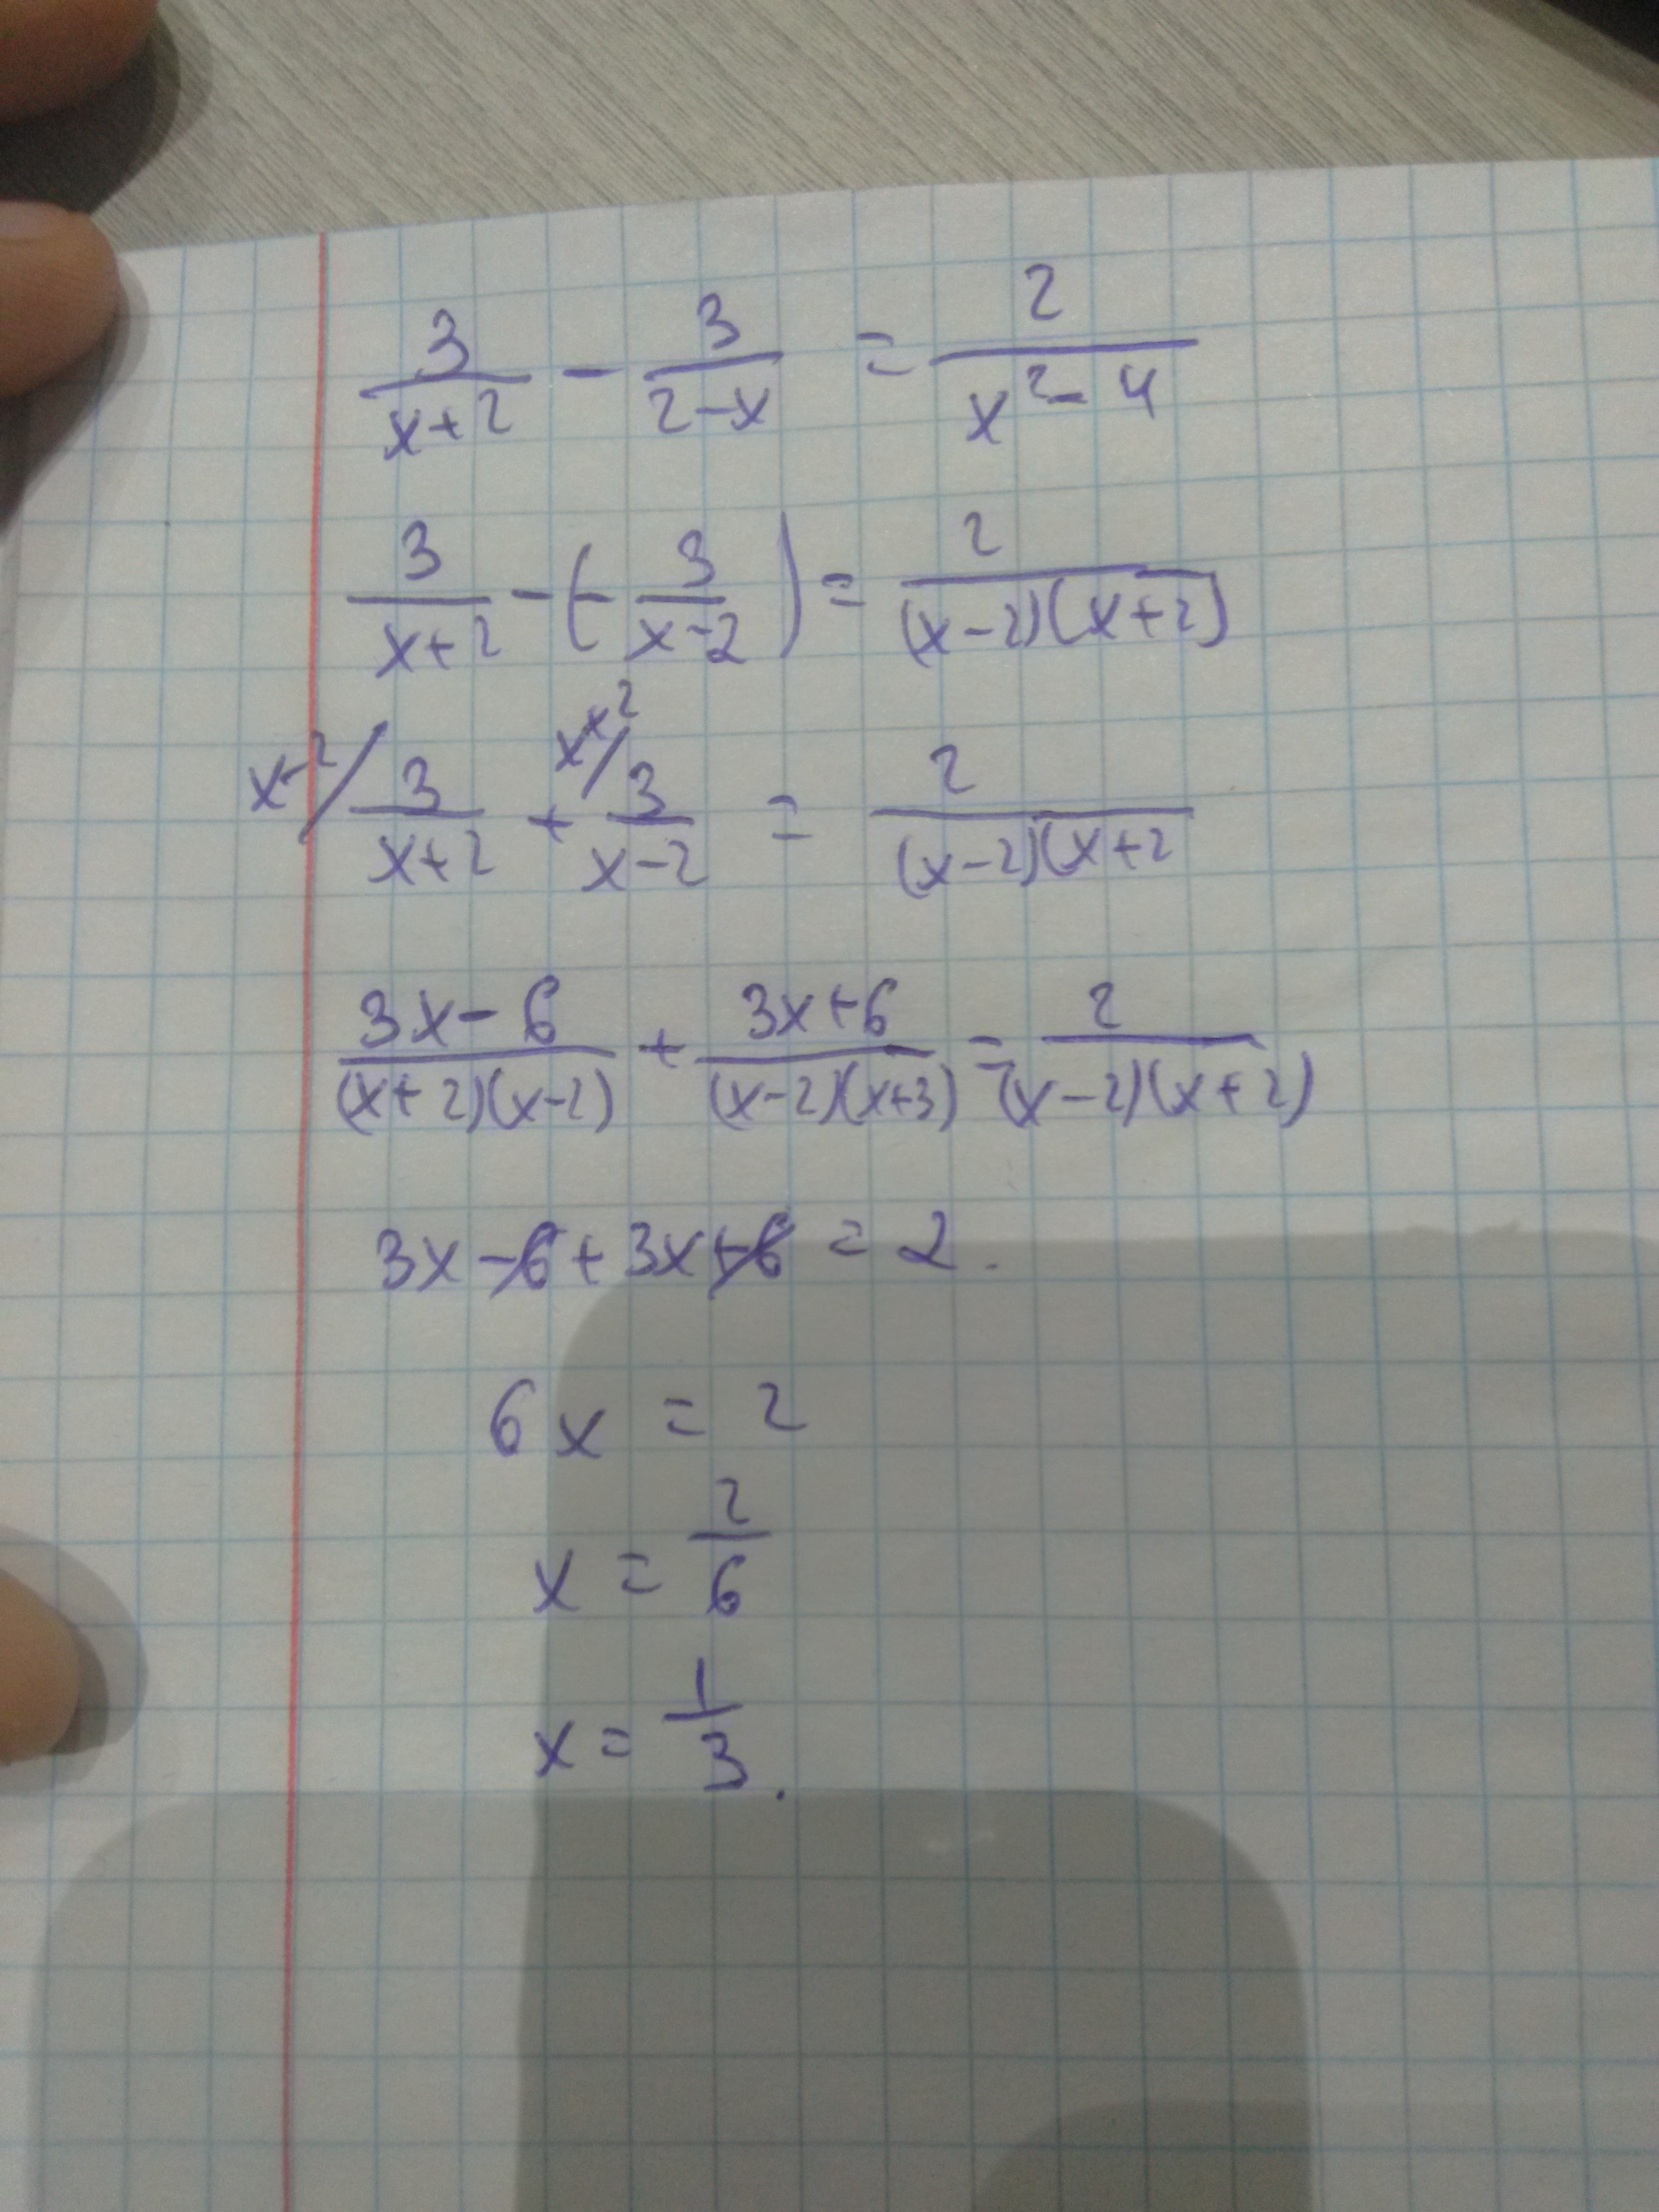 3/(x+2) - 3/(2-x) = 2/(x²-4)
3/(x+2) - (-3/(x-2)) = 2/((x-2)(x+2))
x-2/ 3/(x+2) + x+2/ 3/(x-2) = 2/((x-2)(x+2
(3x-6)/((x+2)(x-2)) + (3x+6)/((x-2)(x+3)) = 2/((x-2)(x+2))
3x-6+3x+6 = 2.
6x = 2
x = 2/6
x = 1/3.